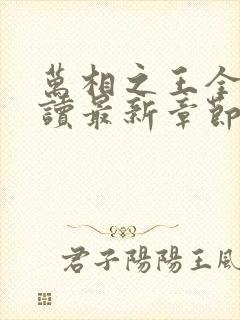 萬相之王全
讀最新章節
君子陽陽王風